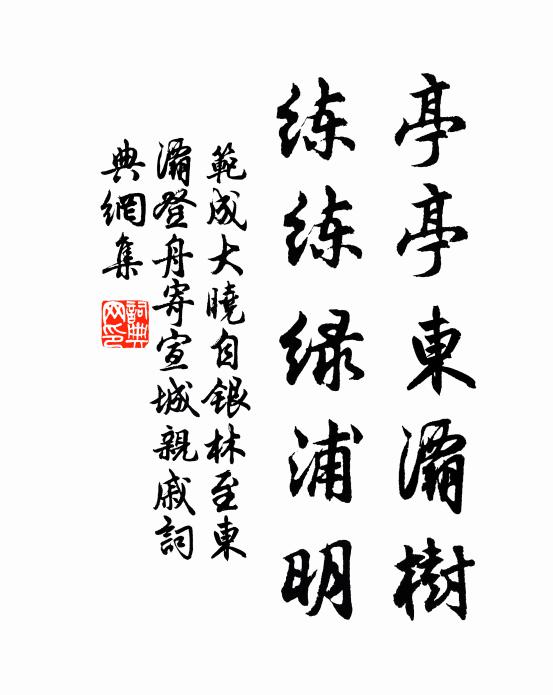 亭亭東灞樹
练练绿浦明
範成大曉自银林至東
灞登舟寄宣城親戚詞
典網集
詞典网印